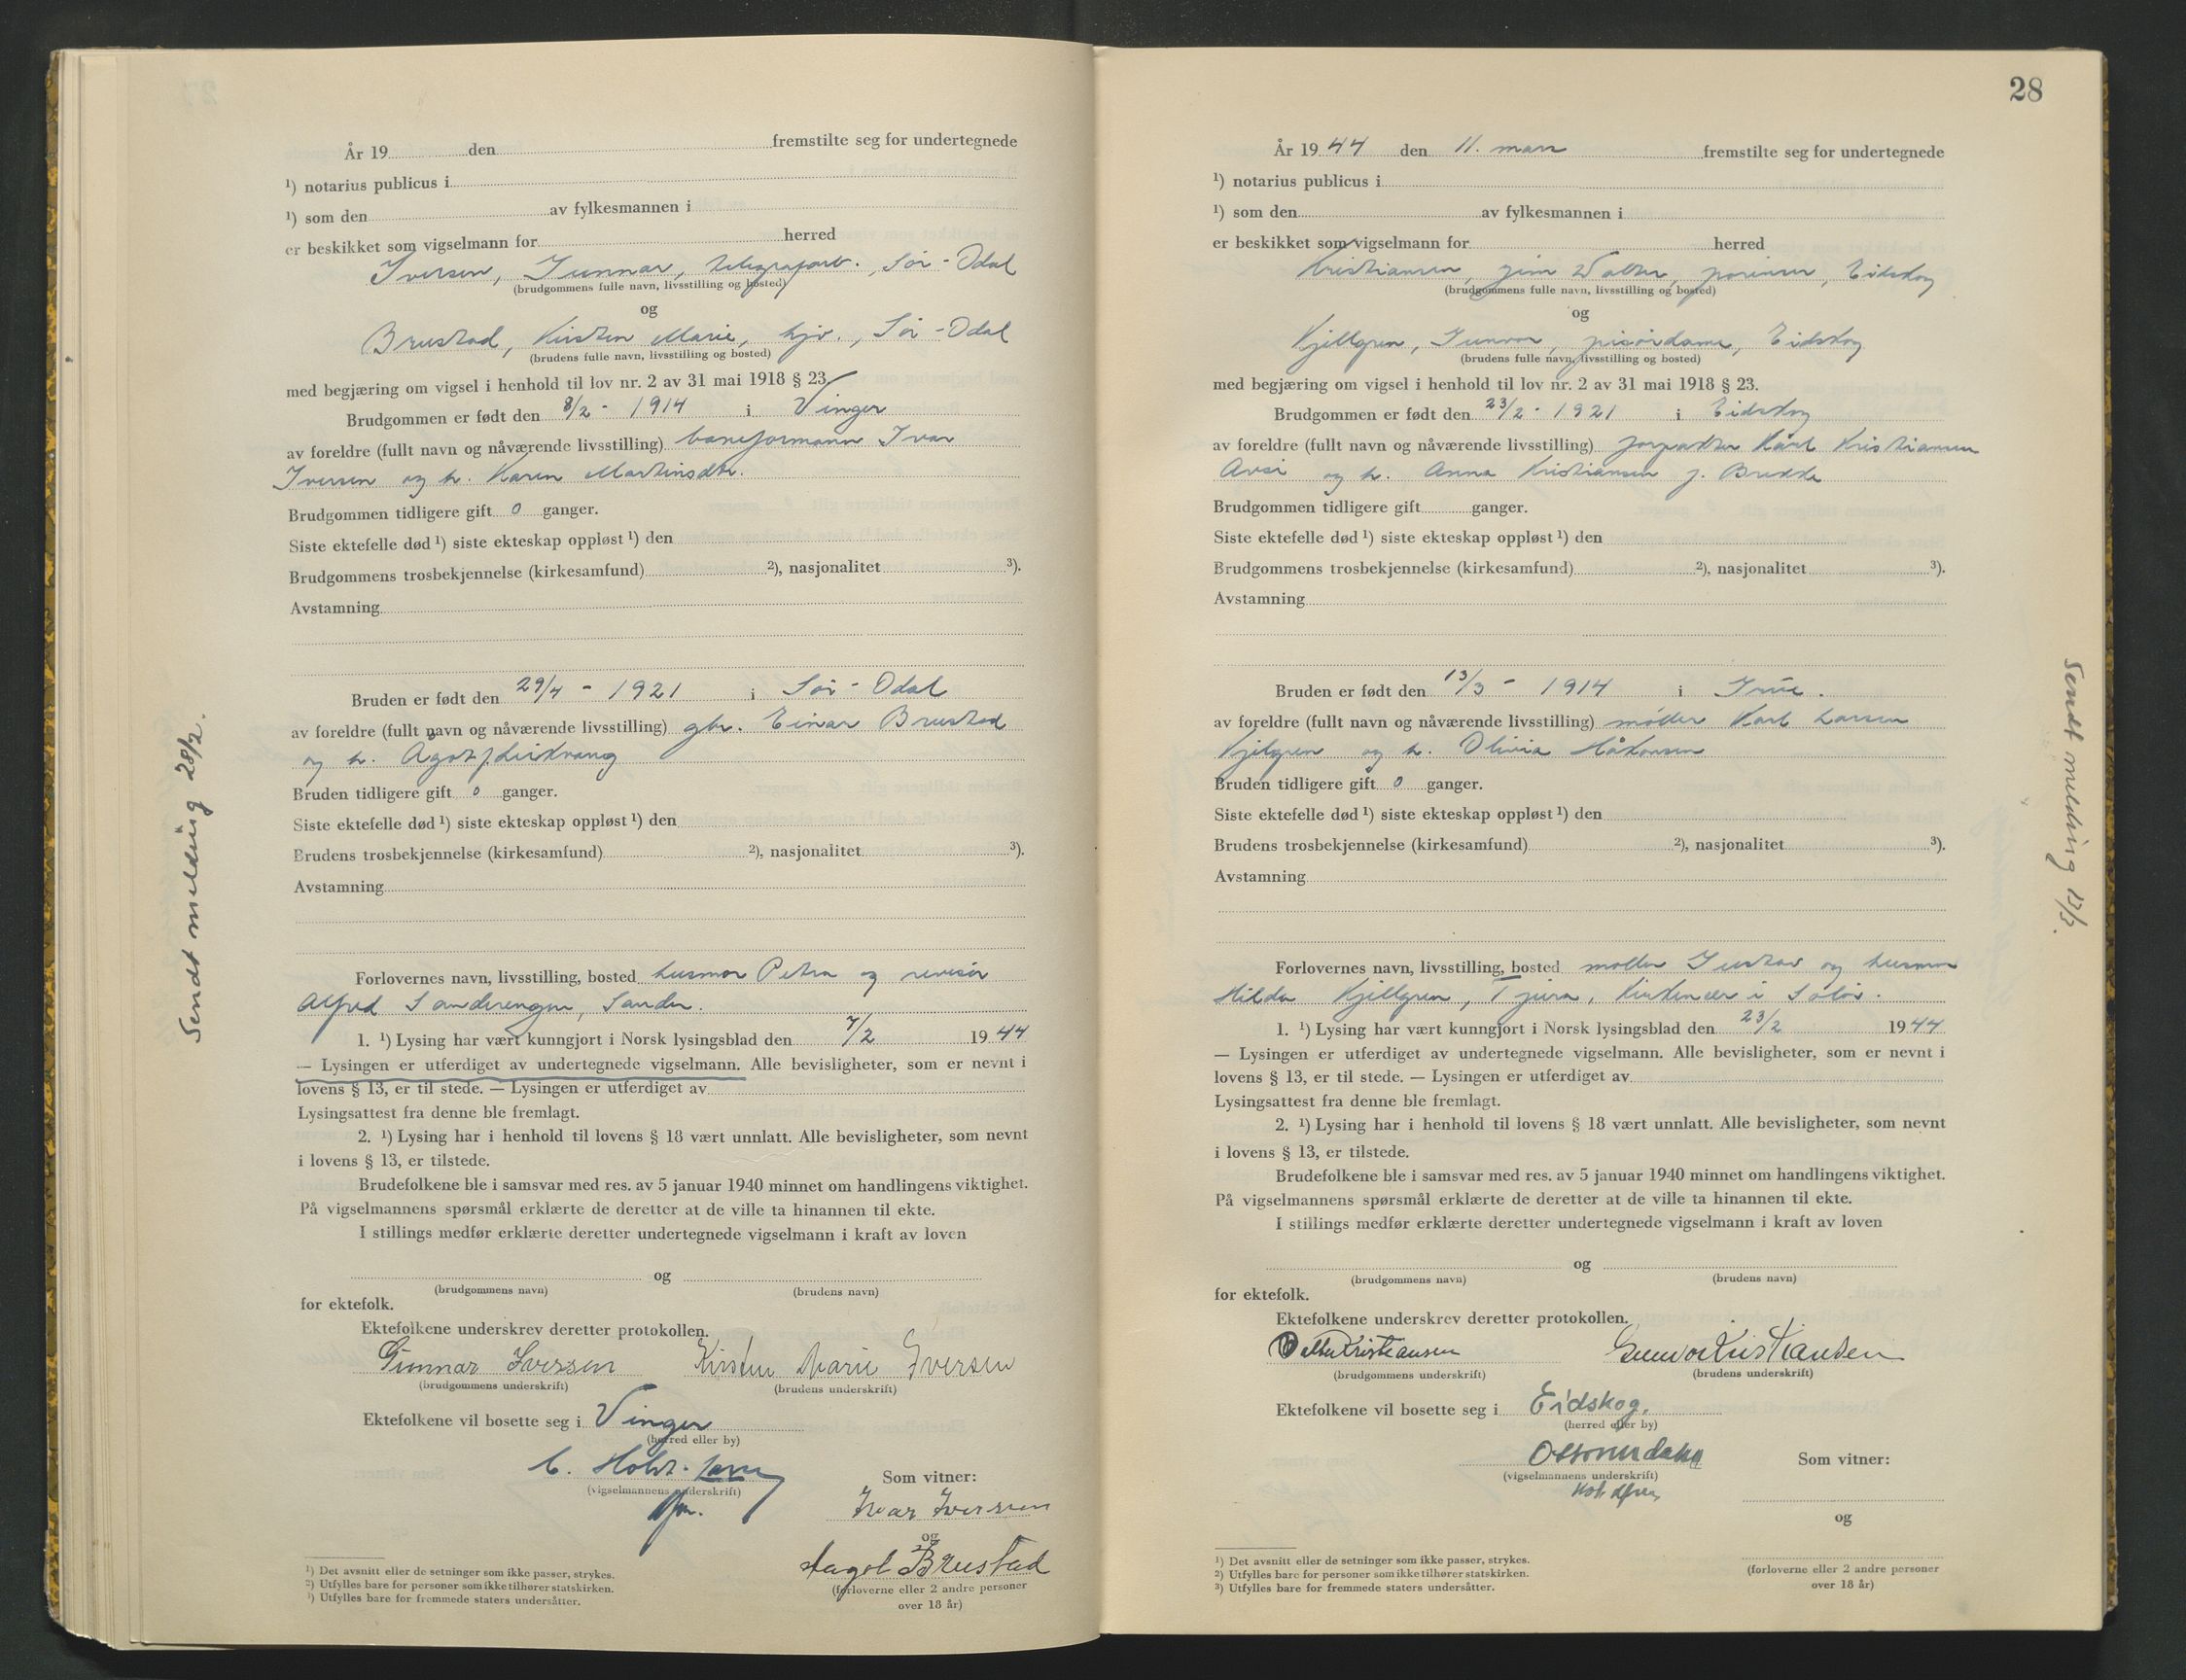 År 19 den fremstilte seg for undertegnede
¹) notarius publicus i
¹) som den av fylkesmannen i
er beskikket som vigselmann for herred
Iversen, Gunnar, telegrafarb., Sør-Odal
(brudgommens fulle navn, livsstilling og bosted)
og
Brustad, Kirsten Marie, hjv., Sør-Odal
(brudens fulle navn, livsstilling og bosted)
med begjæring om vigsel i henhold til lov nr. 2 av 31 mai 1918 § 23.
Brudgommen er født den 8/2 - 1914 i Vinger
av foreldre (fullt navn og nåværende livsstilling) baneformann Ivar
Iversen og h. Karen Martinsdtr.
Brudgommen tidligere gift 0 ganger.
Siste ektefelle død ¹) siste ekteskap oppløst ¹) den
Brudgommens trosbekjennelse (kirkesamfund) ²), nasjonalitet ³).
Avstamning
Bruden er født den 29/4 - 1921 i Sør-Odal
av foreldre (fullt navn og nåværende livsstilling) gbr. Einar Brustad
og h. Ågot f.
Bruden tidligere gift 0 ganger.
Siste ektefelle død ¹) siste ekteskap oppløst ¹) den
Brudens trosbekjennelse (kirkesamfund) ²), nasjonalitet ³).
Avstamning
Forlovernes navn, livsstilling, bosted husmor Petra og revisor
Alfred Sanderengen, Sander.
1. ¹) Lysing har vært kunngjort i Norsk lysingsblad den 7/2 1944
— Lysingen er utferdiget av undertegnede vigselmann. Alle bevisligheter, som er nevnt i
lovens § 13, er til stede. — Lysingen er utferdiget av
Lysingsattest fra denne ble fremlagt.
2. ¹) Lysing har i henhold til lovens § 18 vært unnlatt. Alle bevisligheter, som nevnt
i lovens § 13, er tilstede.
Brudefolkene ble i samsvar med res. av 5 januar 1940 minnet om handlingens viktighet.
På vigselmannens spørsmål erklærte de deretter at de ville ta hinannen til ekte.
I stillings medfør erklærte deretter undertegnede vigselmann i kraft av loven
og
(brudgommens navn) (brudens navn)
for ektefolk.
Ektefolkene underskrev deretter protokollen.
Gunnar Iversen Kirsten Marie Iversen
(brudgommens underskrift) (brudens underskrift)
Ektefolkene vil bosette seg i Vinger
(herred eller by)
(vigselmannens underskrift)
Som vitner:
Ivar Iversen
og
Aagot Brustad
(forloverne eller 2 andre personer
over 18 år)
¹) Det avsnitt eller de setninger som ikke passer, strykes.
²) Utfylles bare for personer som ikke tilhører statskirken.
³) Utfylles bare for fremmede staters undersåtter.
Sendt melding 28/2.
28
År 1944 den 11. mars fremstilte seg for undertegnede
¹) notarius publicus i
¹) som den av fylkesmannen i
er beskikket som vigselmann for herred
Kristiansen, Walter, Eidskog
(brudgommens fulle navn, livsstilling og bosted)
og
Kjellgren, Gunvor, frisørdame, Eidskog
(brudens fulle navn, livsstilling og bosted)
med begjæring om vigsel i henhold til lov nr. 2 av 31 mai 1918 § 23.
Brudgommen er født den 23/2 - 1921 i Eidskog
av foreldre (fullt navn og nåværende livsstilling) forpakter Karl Kristiansen
og h. Anna Kristiansen f. Brekke
Brudgommen tidligere gift ganger.
Siste ektefelle død ¹) siste ekteskap oppløst ¹) den
Brudgommens trosbekjennelse (kirkesamfund) ²), nasjonalitet ³).
Avstamning
Bruden er født den 13/3 - 1914 i Grue.
av foreldre (fullt navn og nåværende livsstilling) møller Karl Larsen
Kjelgren og h. Olivia Håkonsen
Bruden tidligere gift 0 ganger.
Siste ektefelle død ¹) siste ekteskap oppløst ¹) den
Brudens trosbekjennelse (kirkesamfund) ²), nasjonalitet ³).
Avstamning
Forlovernes navn, livsstilling, bosted møller Gustav og husmor
Hilda Kjellgren, Tjura, Kirkenær i Solør.
1. ¹) Lysing har vært kunngjort i Norsk lysingsblad den 23/2 1944
— Lysingen er utferdiget av undertegnede vigselmann. Alle bevisligheter, som er nevnt i
lovens § 13, er til stede. — Lysingen er utferdiget av
Lysingsattest fra denne ble fremlagt.
2. ¹) Lysing har i henhold til lovens § 18 vært unnlatt. Alle bevisligheter, som nevnt
i lovens § 13, er tilstede.
Brudefolkene ble i samsvar med res. av 5 januar 1940 minnet om handlingens viktighet.
På vigselmannens spørsmål erklærte de deretter at de ville ta hinannen til ekte.
I stillings medfør erklærte deretter undertegnede vigselmann i kraft av loven
og
(brudgommens navn) (brudens navn)
for ektefolk.
Ektefolkene underskrev deretter protokollen.
Walter Kristiansen Gunvor Kristiansen
(brudgommens underskrift) (brudens underskrift)
Ektefolkene vil bosette seg i Eidskog.
(herred eller by)
(vigselmannens underskrift)
Som vitner:
og
(forloverne eller 2 andre personer
over 18 år)
¹) Det avsnitt eller de setninger som ikke passer, strykes.
²) Utfylles bare for personer som ikke tilhører statskirken.
³) Utfylles bare for fremmede staters undersåtter.
Sendt melding 13/3.